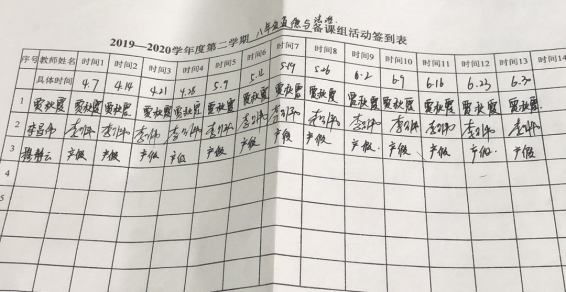 2019—2020学年度第二学期 八年级道德与法治 备课组活动签到表
序号 教师姓名 时间1 时间2 时间3 时间4 时间5 时间6 时间7 时间8 时间9 时间10 时间11 时间12 时间13 时间14
具体时间 4.7 4.14 4.21 4.28 5.9 5.12 5.19 5.26 6.2 6.9 6.16 6.23 6.30
1 贾秋霞 贾秋霞 贾秋霞 贾秋霞 贾秋霞 贾秋霞 贾秋霞 贾秋霞 贾秋霞 贾秋霞 贾秋霞 贾秋霞 贾秋霞 贾秋霞
2
3 产假 产假 产假 产假 产假 产假 产假 产假 产假 产假 产假 产假 产假
4
5